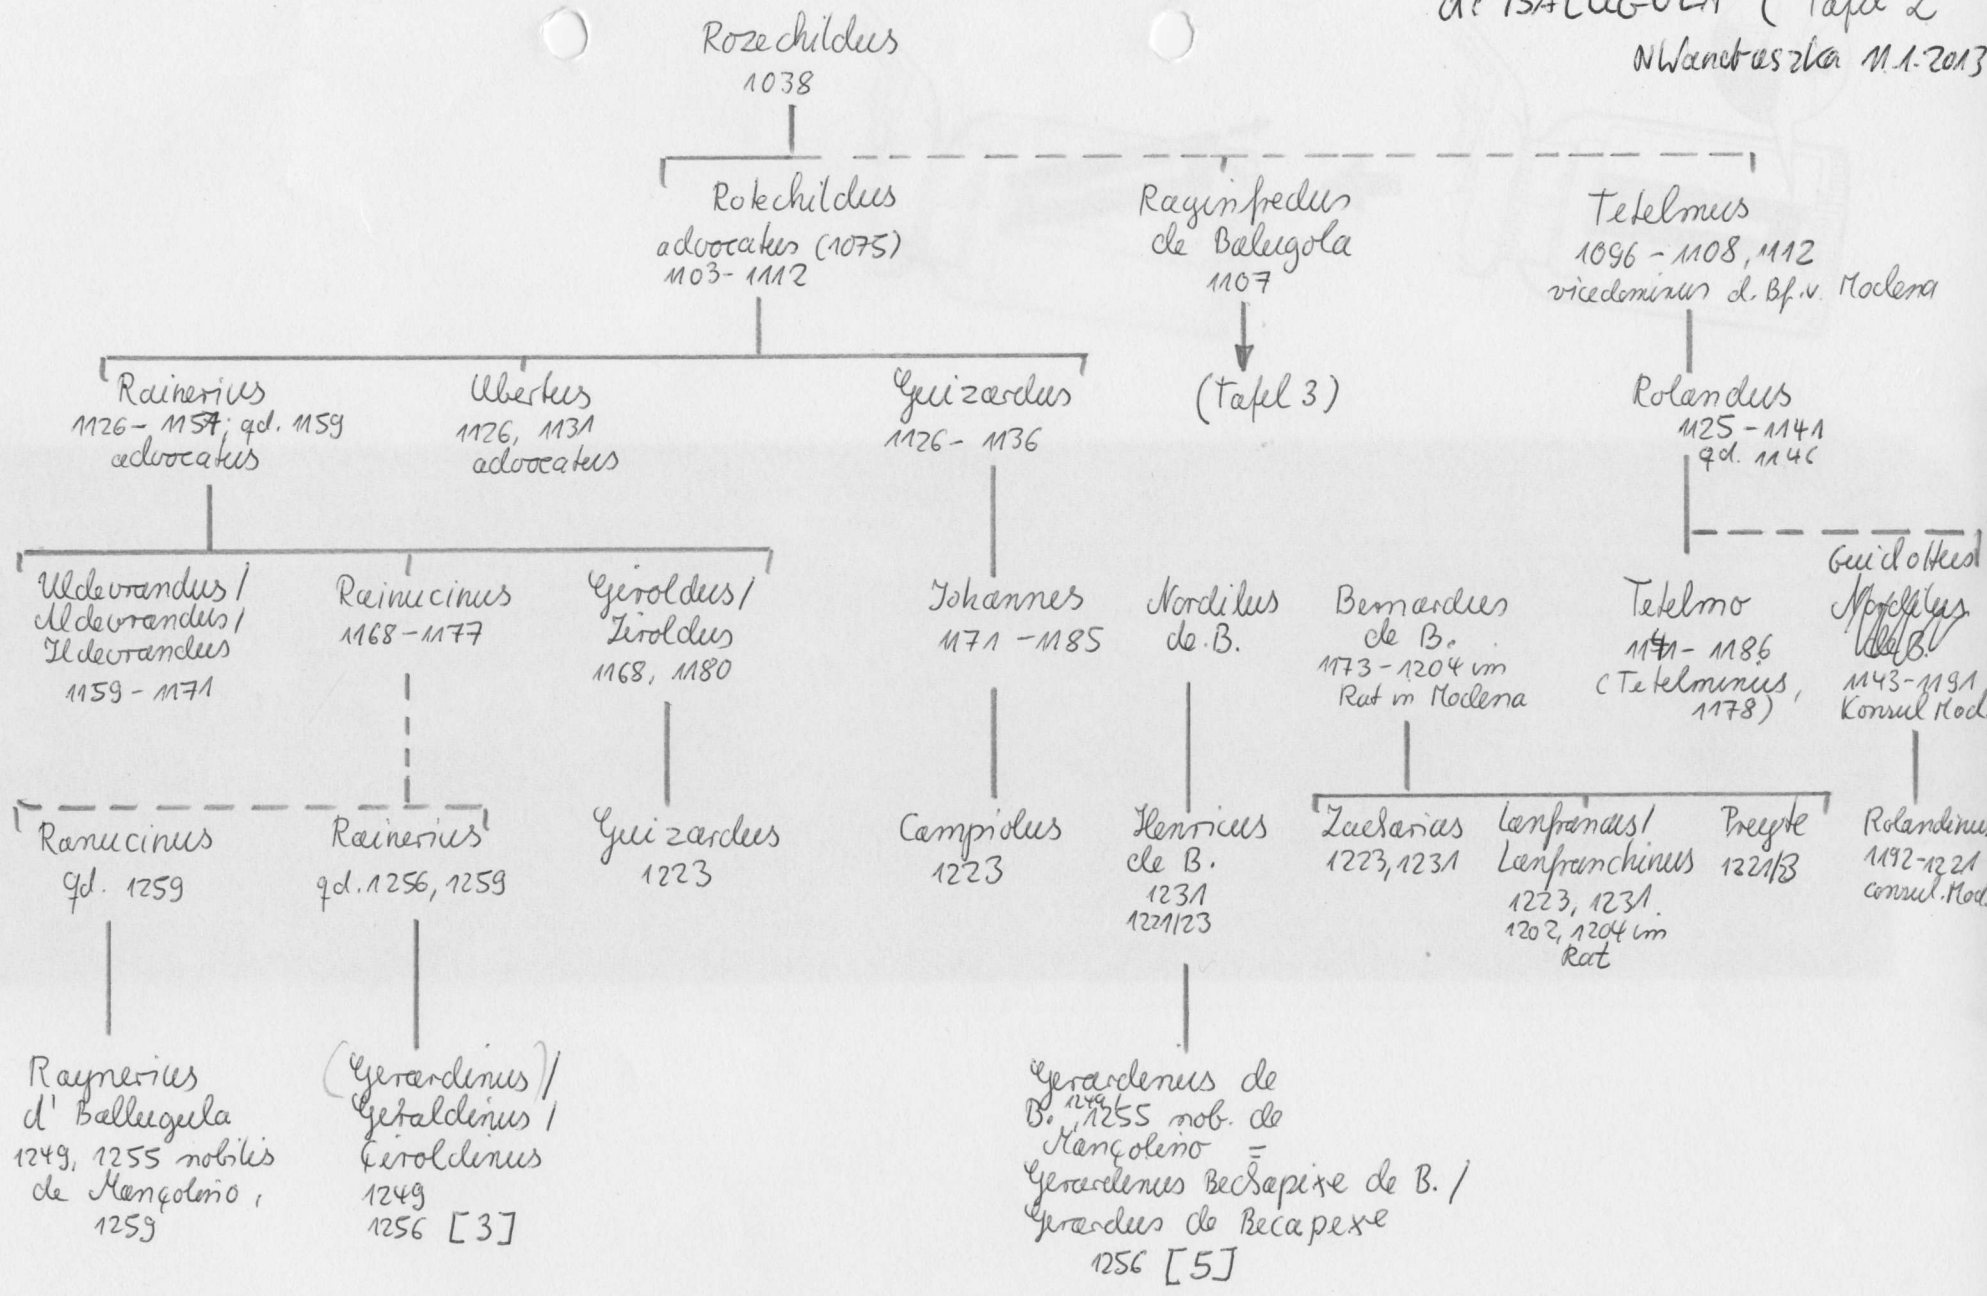 de BALUGOLA ( Tafel 2
NWandruszka 11.1.2013
Rozechildus
1038
Rotechildus
advocatus (1075)
1103-1112
Raginfredus
de Balugola
1107
Tetelmus
1096-1108, 1112
vicedominus d. Bf. v. Modena
Rainerius
1126-1157; qd. 1159
advocatus
Ubertus
1126, 1131
advocatus
Guizardus
1126-1136
(Tafel 3)
Rolandus
1125-1141
qd. 1146
Uldevrandus/
Aldevrandus/
Ildevrandus
1159-1171
Rainucinus
1168-1177
Giroldus/
Ziroldus
1168, 1180
Iohannes
1171-1185
Nordilus
de B.
Bernardus
de B.
1173-1204 im
Rat in Modena
Tetelmo
1141-1186
(Tetelminus,
1178)
Guidottus
Nordilus
de B.
1143-1191
Konsul Mod
Ranucinus
qd. 1259
Rainerius
qd. 1256, 1259
Guizardus
1223
Campiolus
1223
Henricus
de B.
1231
1221/23
Zacharias
1223, 1231
Lanfrancus/
Lanfranchinus
1223, 1231.
1202, 1204 im
Rat
Preyte
1221/3
Rolandinus
1192-1221
consul. Mod.
Raynerius
d' Ballugula
1249, 1255 nobilis
de Mançolino,
1259
(Gerardinus)/
Geraldinus/
Çiroldinus
1249
1256 [3]
Gerardinus de
B. 1249, 1255 nob. de
Mançolino =
Gerardinus Bechapixe de B./
Gerardus de Becapexe
1256 [5]